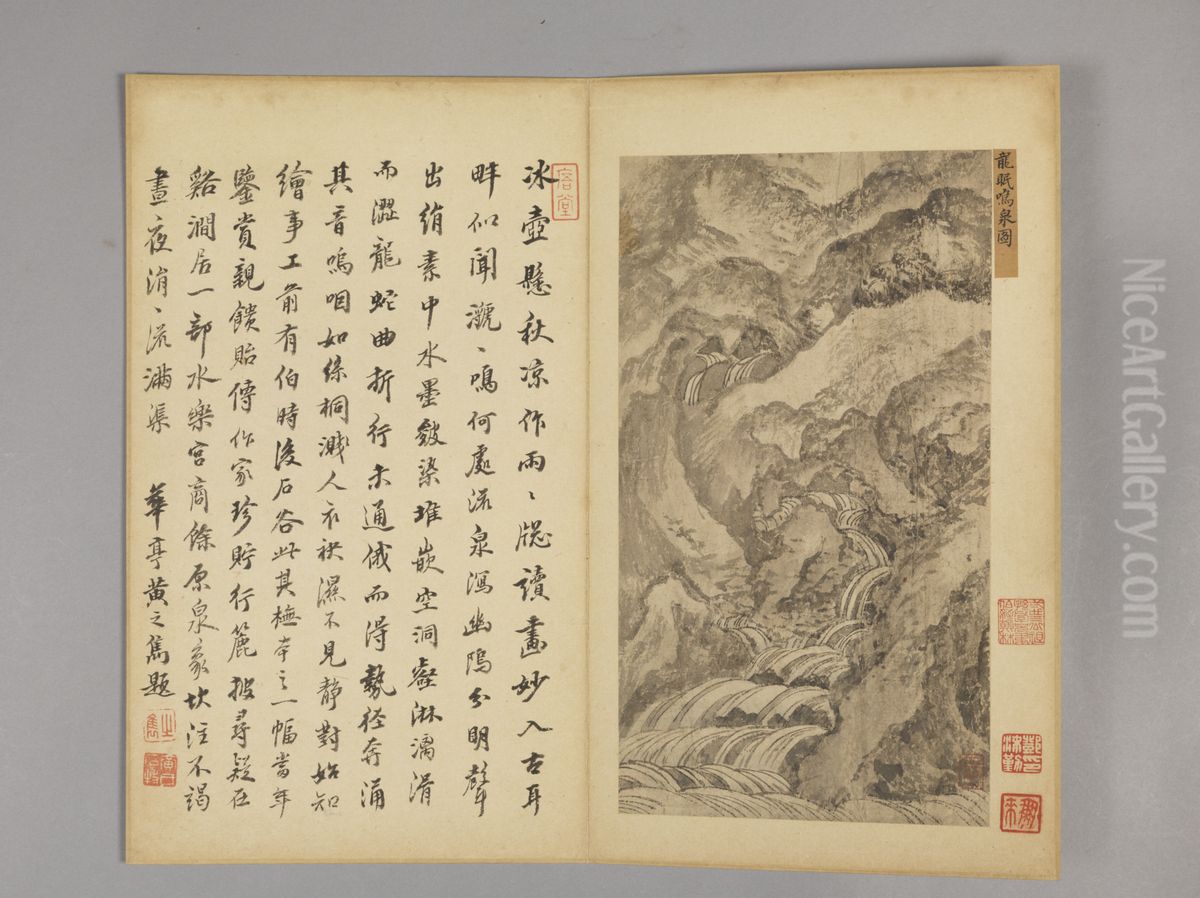 龍眠鳴泉圖
冰壺懸秋凉作雨〻牕讀畫妙入古耳
畔似聞瀧〻鳴何處流泉瀉幽隖分明聲
出綃素中水墨皴染堆嵌空洞壑淋漓滑
而澀龍蛇曲折行未通俄而得勢徑奔涌
其音嗚咽如絲桐濺人衣袂濕不見靜對始知
繪事工前有伯時後石谷此其橅本之一幅當年
鑒賞親饋貽傳作家珍貯行簏披尋疑在
谿澗居一部水樂宮商餘原泉象坎注不竭
晝夜涓〻流滿渠 華亭黄之雋題
NiceArtGallery.com